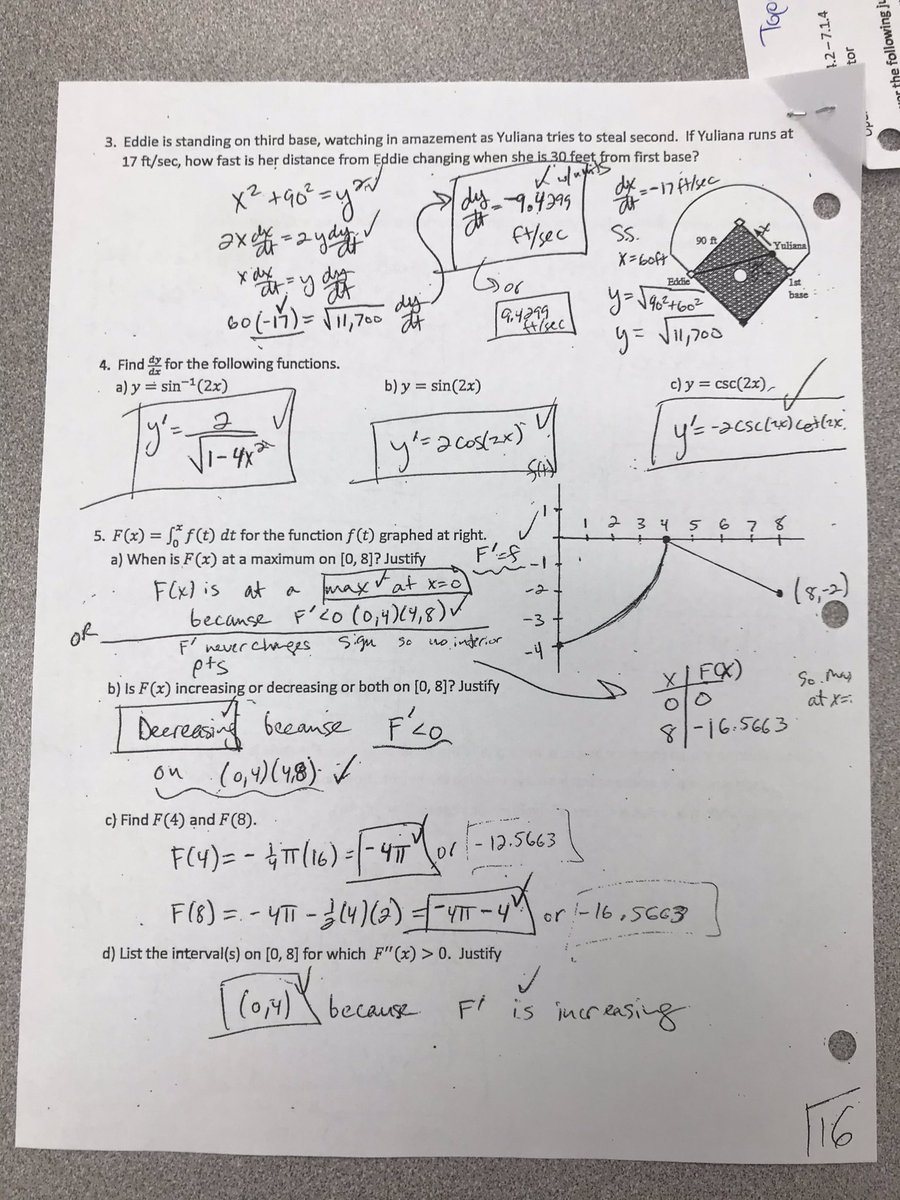 Top
1.2-7.1.4
tor
the following ju
3. Eddie is standing on third base, watching in amazement as Yuliana tries to steal second. If Yuliana runs at
17 ft/sec, how fast is her distance from Eddie changing when she is 30 feet from first base?
x² + 90² = y² ✓
2x dx/dt = 2y dy/dt ✓
x dx/dt = y dy/dt
60(-17) = √11,700 dy/dt
✓ w/units
dy/dt = -9.4299
ft/sec
or
9.4299
ft/sec
dx/dt = -17 ft/sec
S.S.
x = 60ft
y = √90²+60²
y = √11,700
90 ft
x
Yuliana
Eddie
1st
base
4. Find dy/dx for the following functions.
a) y = sin⁻¹(2x)
b) y = sin(2x)
c) y = csc(2x)
y' = 2/√1-4x² ✓
y' = 2cos(2x) ✓
y' = -2csc(2x)cot(2x) ✓
5. F(x) = ∫₀ˣ f(t) dt for the function f(t) graphed at right.
a) When is F(x) at a maximum on [0, 8]? Justify
F'=f
F(x) is at a max ✓ at x=0
because F'<0 (0,4)(4,8) ✓
OR
F' never changes sign so no interior
pts
f(t)
1
1 2 3 4 5 6 7 8
-1
-2
-3
-4
(8,-2)
x F(x)
0 0
8 -16.5663
So max
at x=
b) Is F(x) increasing or decreasing or both on [0, 8]? Justify
Decreasing ✓ because F'<0
on (0,4)(4,8) ✓
c) Find F(4) and F(8).
F(4) = -¼π(16) = -4π ✓ or -12.5663
F(8) = -4π - ½(4)(2) = -4π-4 ✓ or -16.5663
d) List the interval(s) on [0, 8] for which F''(x) > 0. Justify
(0,4) ✓ because F' is increasing ✓
16